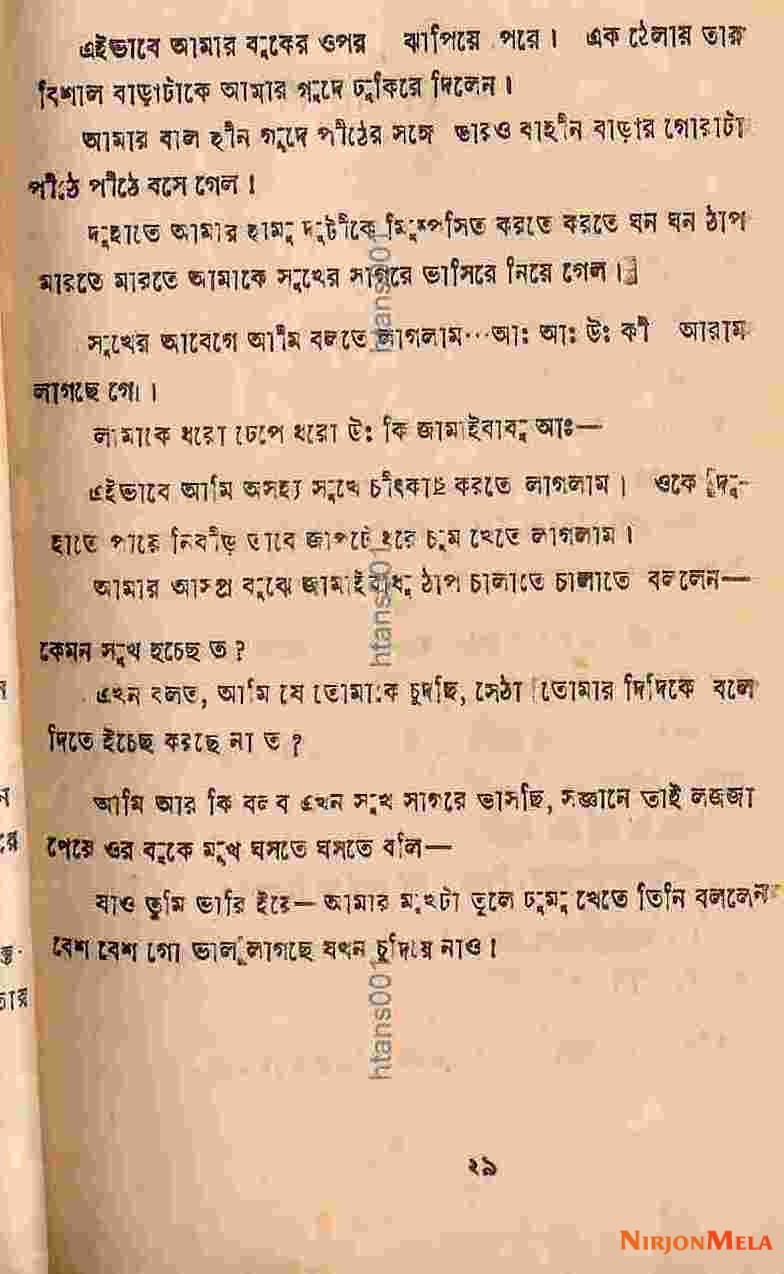 এইভাবে আমার বুকের ওপর ঝাপিয়ে পরে। এক ঠেলায় তার
বিশাল বাড়াটাকে আমার গুদে ঢুকিরে দিলেন।
আমার বাল হীন গুদে পীঠের সঙ্গে ভারও বাহীন বাড়ার গোরাটা
পীঠে পীঠে বসে গেল।
দুহাতে আমার হামু দুটীকে করতে করতে ঘন ঘন ঠাপ
মারতে মারতে আমাকে সুখের সাগরে ভাসিরে নিয়ে গেল।
সুখের আবেগে আমি বলতে লাগলাম···আঃ আঃ উঃ কী আরাম
লাগছে গো।
লামাকে ধরো চেপে ধরো উঃ কি জামাইবাবু আঃ—
এইভাবে আমি অসহ্য সুখে চীৎকার করতে লাগলাম। ওকে দু-
হাতে পায়ে নিবীড় ভাবে জাপটে ধরে চুম খেতে লাগলাম।
আমার বুঝে জামাইবাবু ঠাপ চালাতে চালাতে বললেন—
কেমন সুখ হচেছ ত?
এখন বলত, আমি যে তোমাকে চুদছি, সেঠা তোমার দিদিকে বলে
দিতে ইচেছ করছে না ত?
আমি আর কি বলব এখন সুখ সাগরে ভাসছি, সজ্ঞানে তাই লজজা
পেয়ে ওর বুকে মুখ ঘসতে ঘসতে বলি—
যাও তুমি ভারি ইয়ে— আমার মুখটা তুলে চুমু খেতে তিনি বললেন
বেশ বেশ গো ভাল লাগছে যখন চুদিয়ে নাও।
২৯
htans001
htans001
htans001
NIRJONMELA